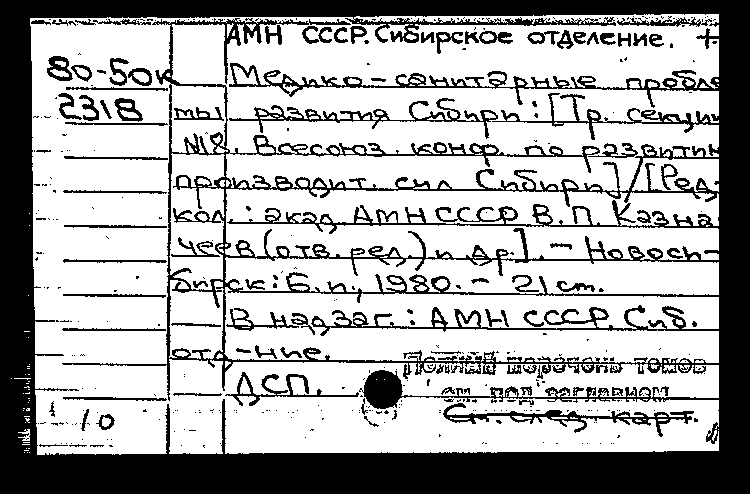 АМН СССР. Сибирское отделение. +
80-50к
2318
Медико-санитарные пробле
мы развития Сибири: [Тр. секции
№18. Всесоюз. конф. по развитию
производит. сил Сибири] / [Ред.
кол.: акад. АМН СССР В.П. Казна
чеев (отв. ред.) и др]. - Новоси-
бирск: Б.и., 1980. - 21 cm.
В надзаг.: АМН СССР. Сиб.
отд-ние.
Полный перечень томов
ДСП.
см. под заглавием
См. след карт.
10